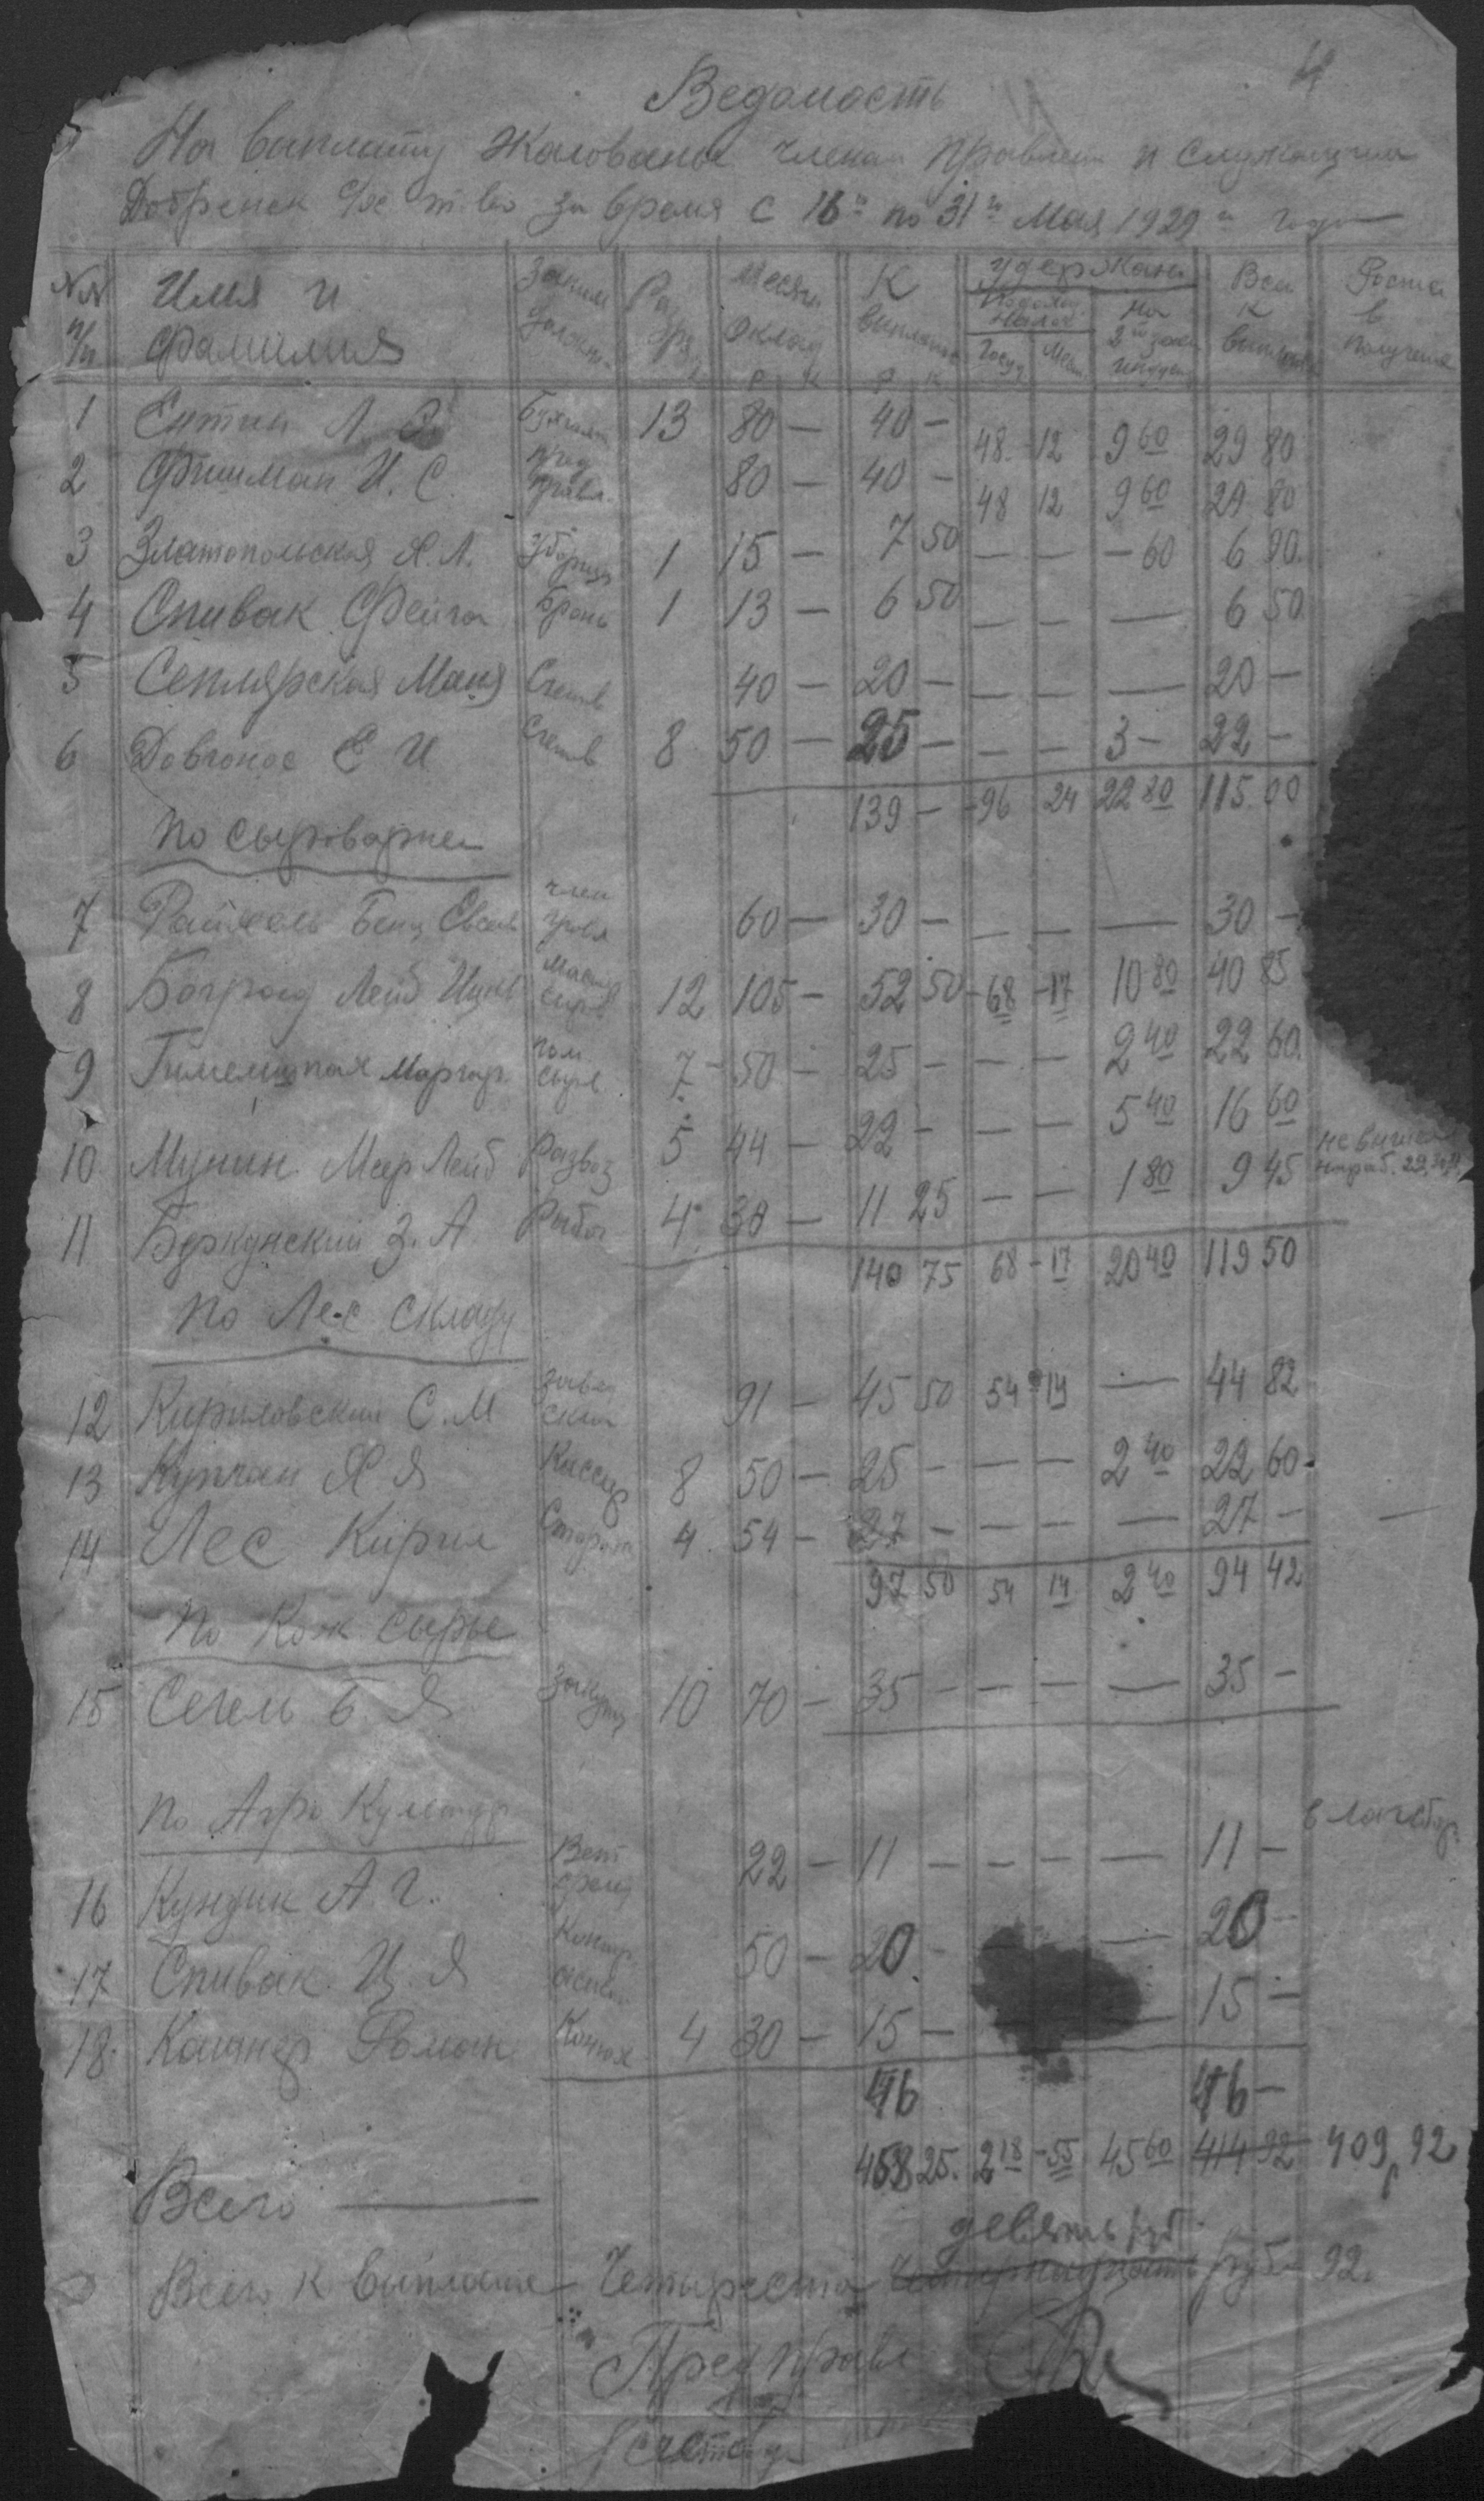 4
Ведомость
На виплату жалованье членам правлен и служащим
Добренск с/хс т-во за время с 16го по 31го Мая 1929 года
№№ п/п Имя и Фамилия Заним должн. Разряд Месячн Оклад К виплате Удержано Всего к виплате Роспис в получение
Подоход. налог На 2й заем индуст
Госуд Мест
Р К Р К
1 Ентин Л. Бухгалт 13 80 — 40 — 48 12 9 60 29 80
2 Фишман И. С. пред правл. 80 — 40 — 48 12 9 60 29 80
3 Златопольская Х. Л. Уборщ 1 15 — 7 50 — — — 60 6 90
4 Спивак Фейга 1 13 — 6 50 — — — 6 50
5 Сеплярская Маня Счетов 40 — 20 — — — — 20 —
6 Довгонос Е И Счетов 8 50 — 25 — — — 3 — 22 —
139 — 96 24 22 80 115.00
По сыроварне
7 Райхель Бенц член правл 60 — 30 — — — — 30 —
8 Боград Лейб Ицк Мастер сыров 12 105 — 52 50 — 68 — 17 10 80 40 85
9 Маргар. пом. сыров 7 — 50 — 25 — — — 2 40 22 60
10 Мунин Меер Лейб Развоз 5 44 — 22 — — — 5 40 16 60
11 Буркунский З. А. Рабоч 4 30 — 11 25 — — 1 80 9 45
140 75 68 — 17 20 40 119 50
По Лес складу
12 Кириловский С. М завед склад 91 — 45 50 54 14 — 44 82
13 Купчан Х Я Кассир 8 50 — 25 — — — 2 40 22 60
14 Лес Кирил Сторож 4 54 — 27 — — — — 27 —
97 50 54 14 2 40 94 42
По Кож сырье
15 Сегем Б. Я Закупщ 10 70 — 35 — — — — 35 —
По Агро Культур
16 Кундик А. Г. Вет 22 — 11 — — — — 11 —
17 Спивак И. Я Контр 50 — 20 — — 20 —
18 Кашнер Роман Конюх 4 30 — 15 — — 15 —
46 46 —
Всего — 458 25. 2 18 — 55 45 60 414 92 409 92
девять руб
Всего к виплате — Четыреста четырнадцать руб 92.
Пред правл
Счетовод